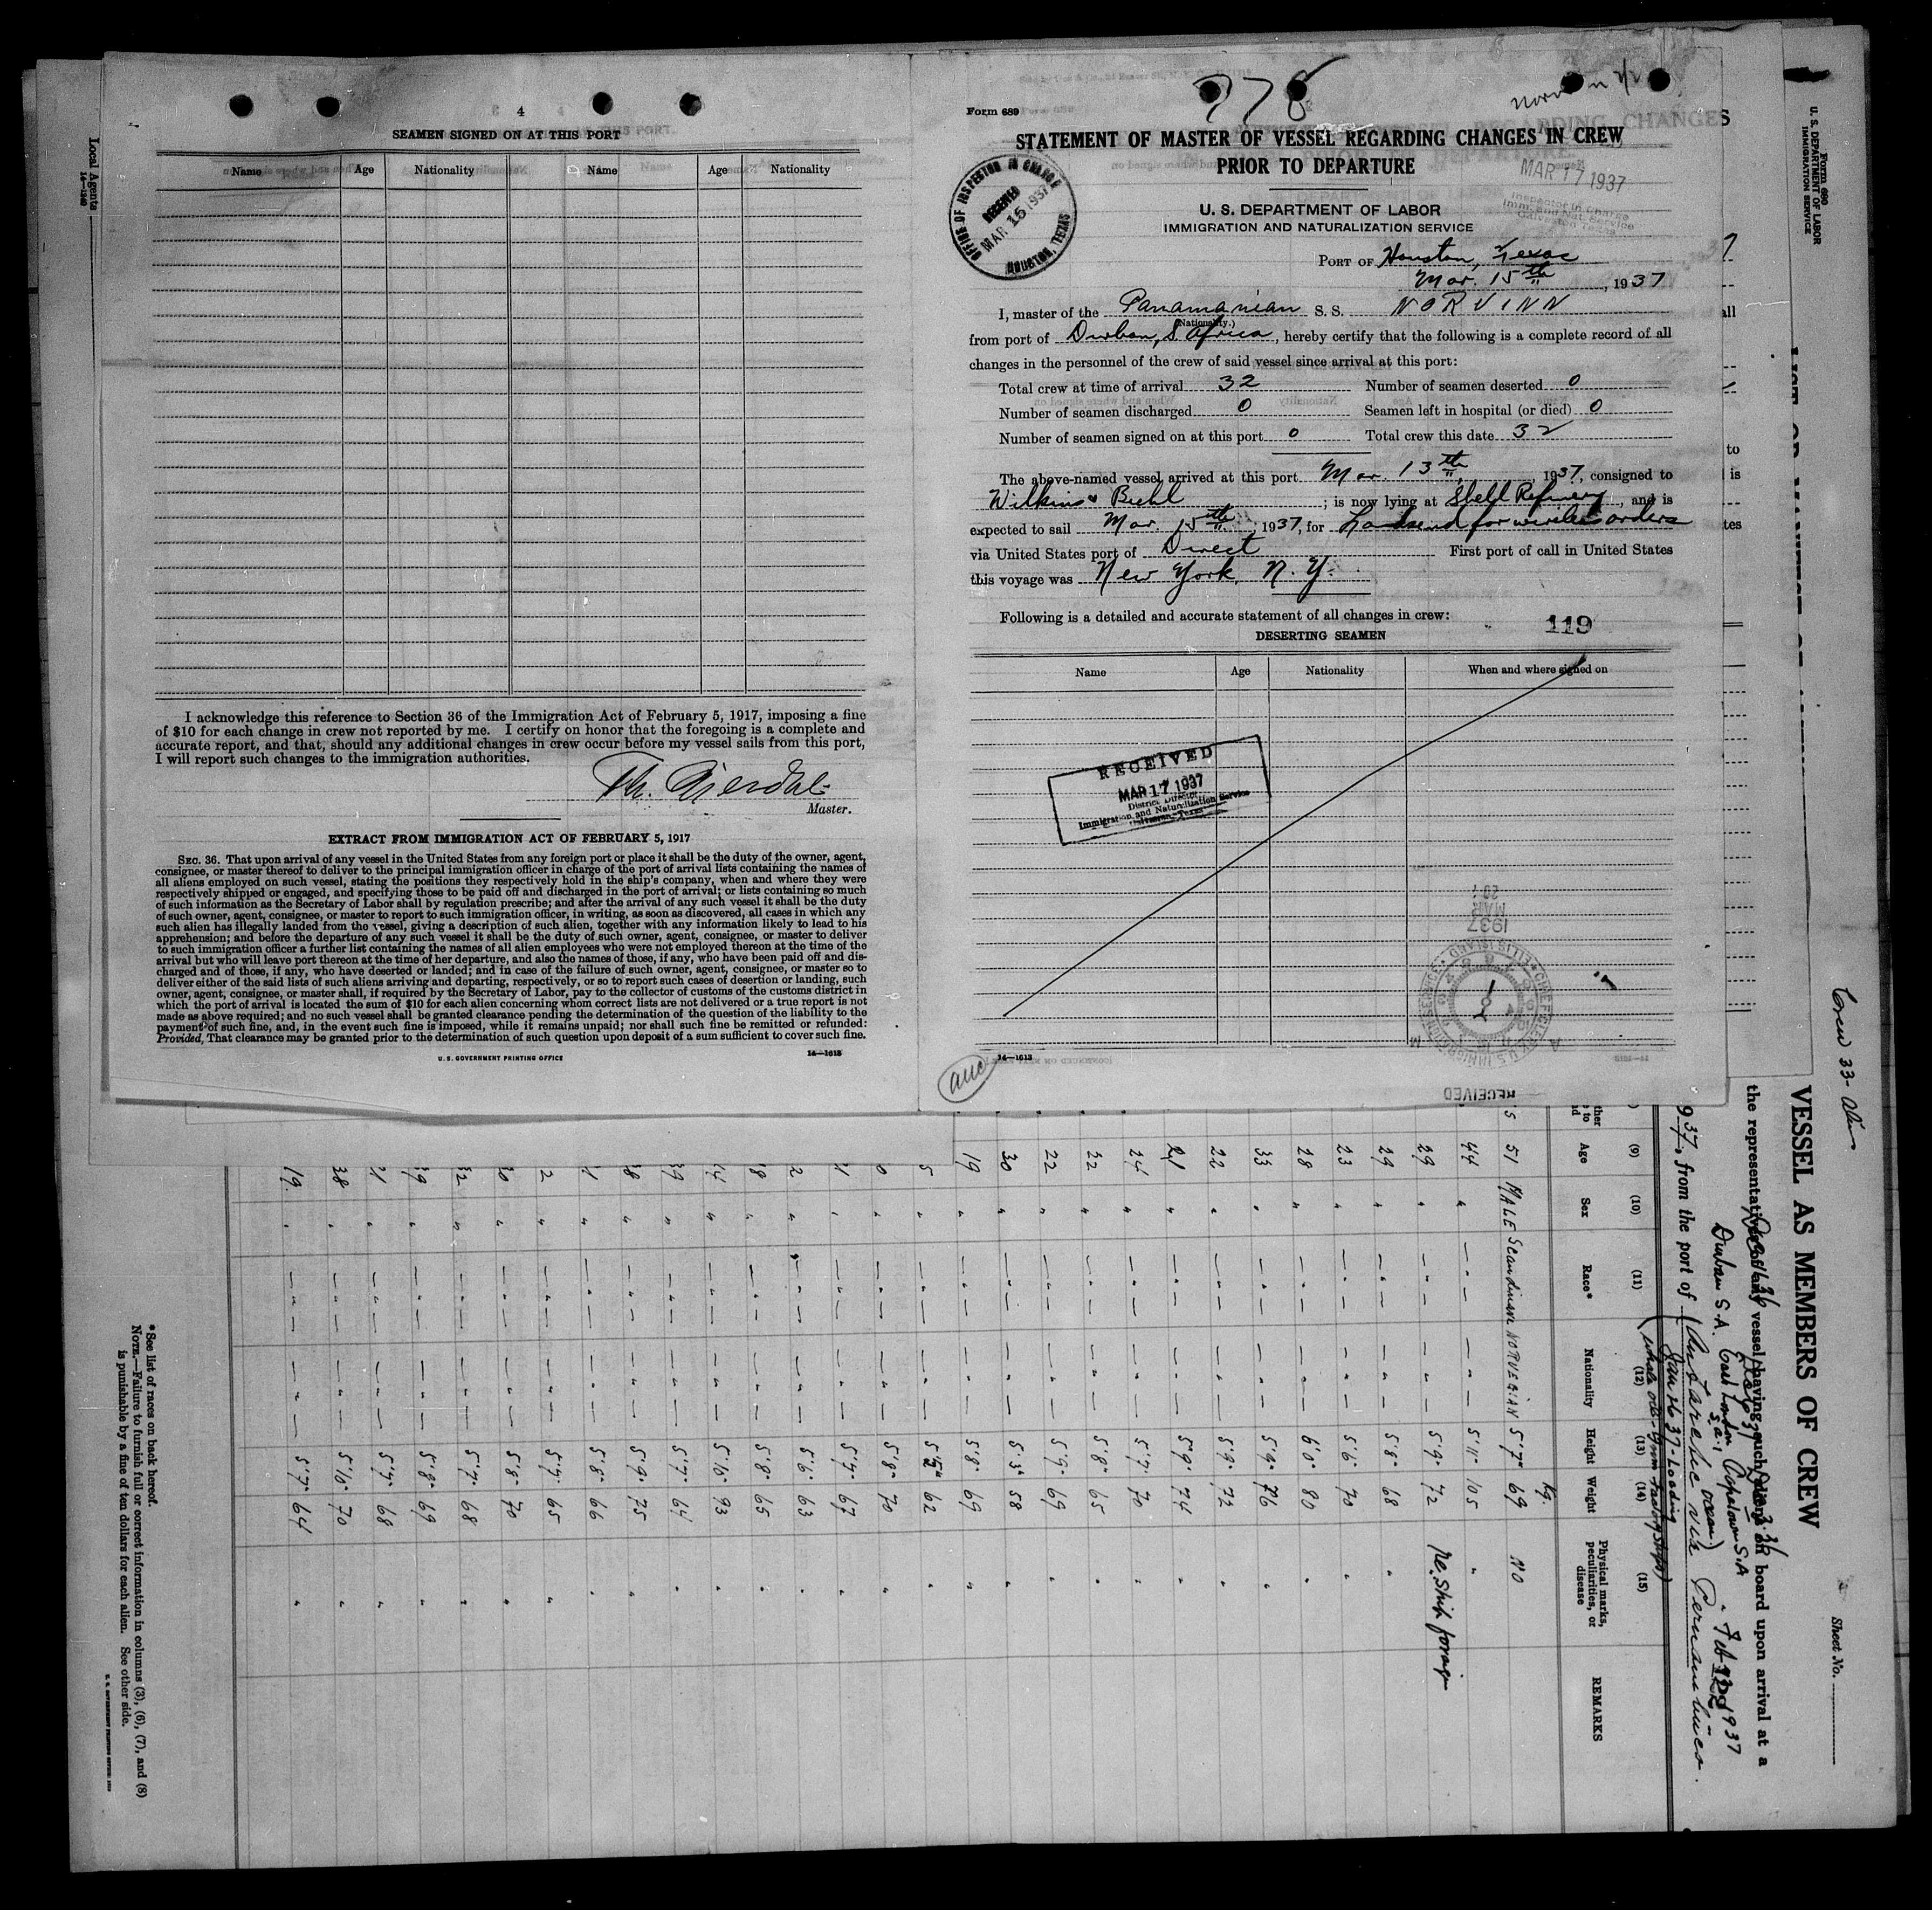 4
SEAMEN SIGNED ON AT THIS PORT
Name Age Nationality Name Age Nationality
I acknowledge this reference to Section 36 of the Immigration Act of February 5, 1917, imposing a fine
of $10 for each change in crew not reported by me. I certify on honor that the foregoing is a complete and
accurate report, and that, should any additional changes in crew occur before my vessel sails from this port,
I will report such changes to the immigration authorities.
Master.
EXTRACT FROM IMMIGRATION ACT OF FEBRUARY 5, 1917
SEC. 36. That upon arrival of any vessel in the United States from any foreign port or place it shall be the duty of the owner, agent,
consignee, or master thereof to deliver to the principal immigration officer in charge of the port of arrival lists containing the names of
all aliens employed on such vessel, stating the positions they respectively hold in the ship's company, when and where they were
respectively shipped or engaged, and specifying those to be paid off and discharged in the port of arrival; or lists containing so much
of such information as the Secretary of Labor shall by regulation prescribe; and after the arrival of any such vessel it shall be the duty
of such owner, agent, consignee, or master to report to such immigration officer, in writing, as soon as discovered, all cases in which any
such alien has illegally landed from the vessel, giving a description of such alien, together with any information likely to lead to his
apprehension; and before the departure of any such vessel it shall be the duty of such owner, agent, consignee, or master to deliver
to such immigration officer a further list containing the names of all alien employees who were not employed thereon at the time of the
arrival but who will leave port thereon at the time of her departure, and also the names of those, if any, who have been paid off and dis-
charged and of those, if any, who have deserted or landed; and in case of the failure of such owner, agent, consignee, or master so to
deliver either of the said lists of such aliens arriving and departing, respectively, or so to report such cases of desertion or landing, such
owner, agent, consignee, or master shall, if required by the Secretary of Labor, pay to the collector of customs of the customs district in
which the port of arrival is located the sum of $10 for each alien concerning whom correct lists are not delivered or a true report is not
made as above required; and no such vessel shall be granted clearance pending the determination of the question of the liability to the
payment of such fine, and, in the event such fine is imposed, while it remains unpaid; nor shall such fine be remitted or refunded:
Provided, That clearance may be granted prior to the determination of such question upon deposit of a sum sufficient to cover such fine.
U. S. GOVERNMENT PRINTING OFFICE 14—1613
778
Form 689
STATEMENT OF MASTER OF VESSEL REGARDING CHANGES IN CREW
PRIOR TO DEPARTURE
MAR 17 1937
Inspector in Charge
Imm. and Nat. Service
Galveston, Texas
OFFICE OF INSPECTOR IN CHARGE
RECEIVED
MAR 15 1937
HOUSTON, TEXAS
U. S. DEPARTMENT OF LABOR
IMMIGRATION AND NATURALIZATION SERVICE
PORT OF Houston, Texas
Mar. 15th, 1937
I, master of the Panamanian S. S. NORVINN
(Nationality.)
from port of Durban, S. Africa, hereby certify that the following is a complete record of all
changes in the personnel of the crew of said vessel since arrival at this port:
Total crew at time of arrival 32 Number of seamen deserted 0
Number of seamen discharged 0 Seamen left in hospital (or died) 0
Number of seamen signed on at this port 0 Total crew this date 32
The above-named vessel arrived at this port Mar. 13th, 1937, consigned to
Wilkins & Biehl; is now lying at Shell Refinery, and is
expected to sail Mar. 15th, 1937, for Landsend for wireless orders
via United States port of Direct First port of call in United States
this voyage was New York, N. Y.
Following is a detailed and accurate statement of all changes in crew:
119
DESERTING SEAMEN
Name Age Nationality When and where signed on
RECEIVED
MAR 17 1937
District Director
Immigration and Naturalization Service
14—1613
RECEIVED
Local Agents
14—1240
Form 680
U. S. DEPARTMENT OF LABOR
IMMIGRATION SERVICE
Sheet No.
VESSEL AS MEMBERS OF CREW
the representatives of any vessel having such aliens on board upon arrival at a
Durban S.A. East London S.A. Capetown S.A
37, from the port of (Antarctic ocean) via Pernambuco.
Jan 26 37 Loading
(whale oil from factory ships)
(9) (10) (11) (12) (13) (14) (15)
Age Sex Race* Nationality Height Weight Physical marks, peculiarities, or disease REMARKS
Kg.
51 MALE Scandinav NORVEGIAN 5'7" 69 NO
44 " — " — — " — 5'11" 105 "
29 " — " — — " — 5'9" 72 Re.ship foreign
29 " — " — — " — 5'8" 68 "
23 " — " — — " — 5'6" 70 "
28 " — " — — " — 6'0" 80 "
33 " — " — — " — 5'9" 76 "
22 " — " — — " — 5'9" 72 "
21 " — " — — " — 5'9" 74 "
24 " — " — — " — 5'7" 70 "
22 " — " — — " — 5'8" 65 "
22 " — " — — " — 5'9" 69 "
30 " — " — — " — 5'3" 58 "
19 " — " — — " — 5'8" 69 "
5 " — " — — " — 62 "
0 " — " — — " — 5'8" 70 "
1 " — " — — " — 5'7" 67 "
2 " — " — — " — 5'6" 63 "
8 " — " — — " — 5'8" 65 "
14 " — " — — " — 5'10" 93 "
39 " — " — — " — 5'7" 64 "
38 " — " — — " — 5'9" 75 "
1 " — " — — " — 5'8" 66 "
2 " — " — — " — 5'7" 65 "
0 " — " — — " — 5'8" 70 "
32 " — " — — " — 5'7" 68 "
39 " — " — — " — 5'8" 69 "
21 " — " — — " — 5'7" 68 "
38 " — " — — " — 5'10" 70 "
19. " — " — — " — 5'7" 64 "
*See list of races on back hereof.
NOTE.—Failure to furnish full or correct information in columns (3), (6), (7), and (8)
is punishable by a fine of ten dollars for each alien. See other side.